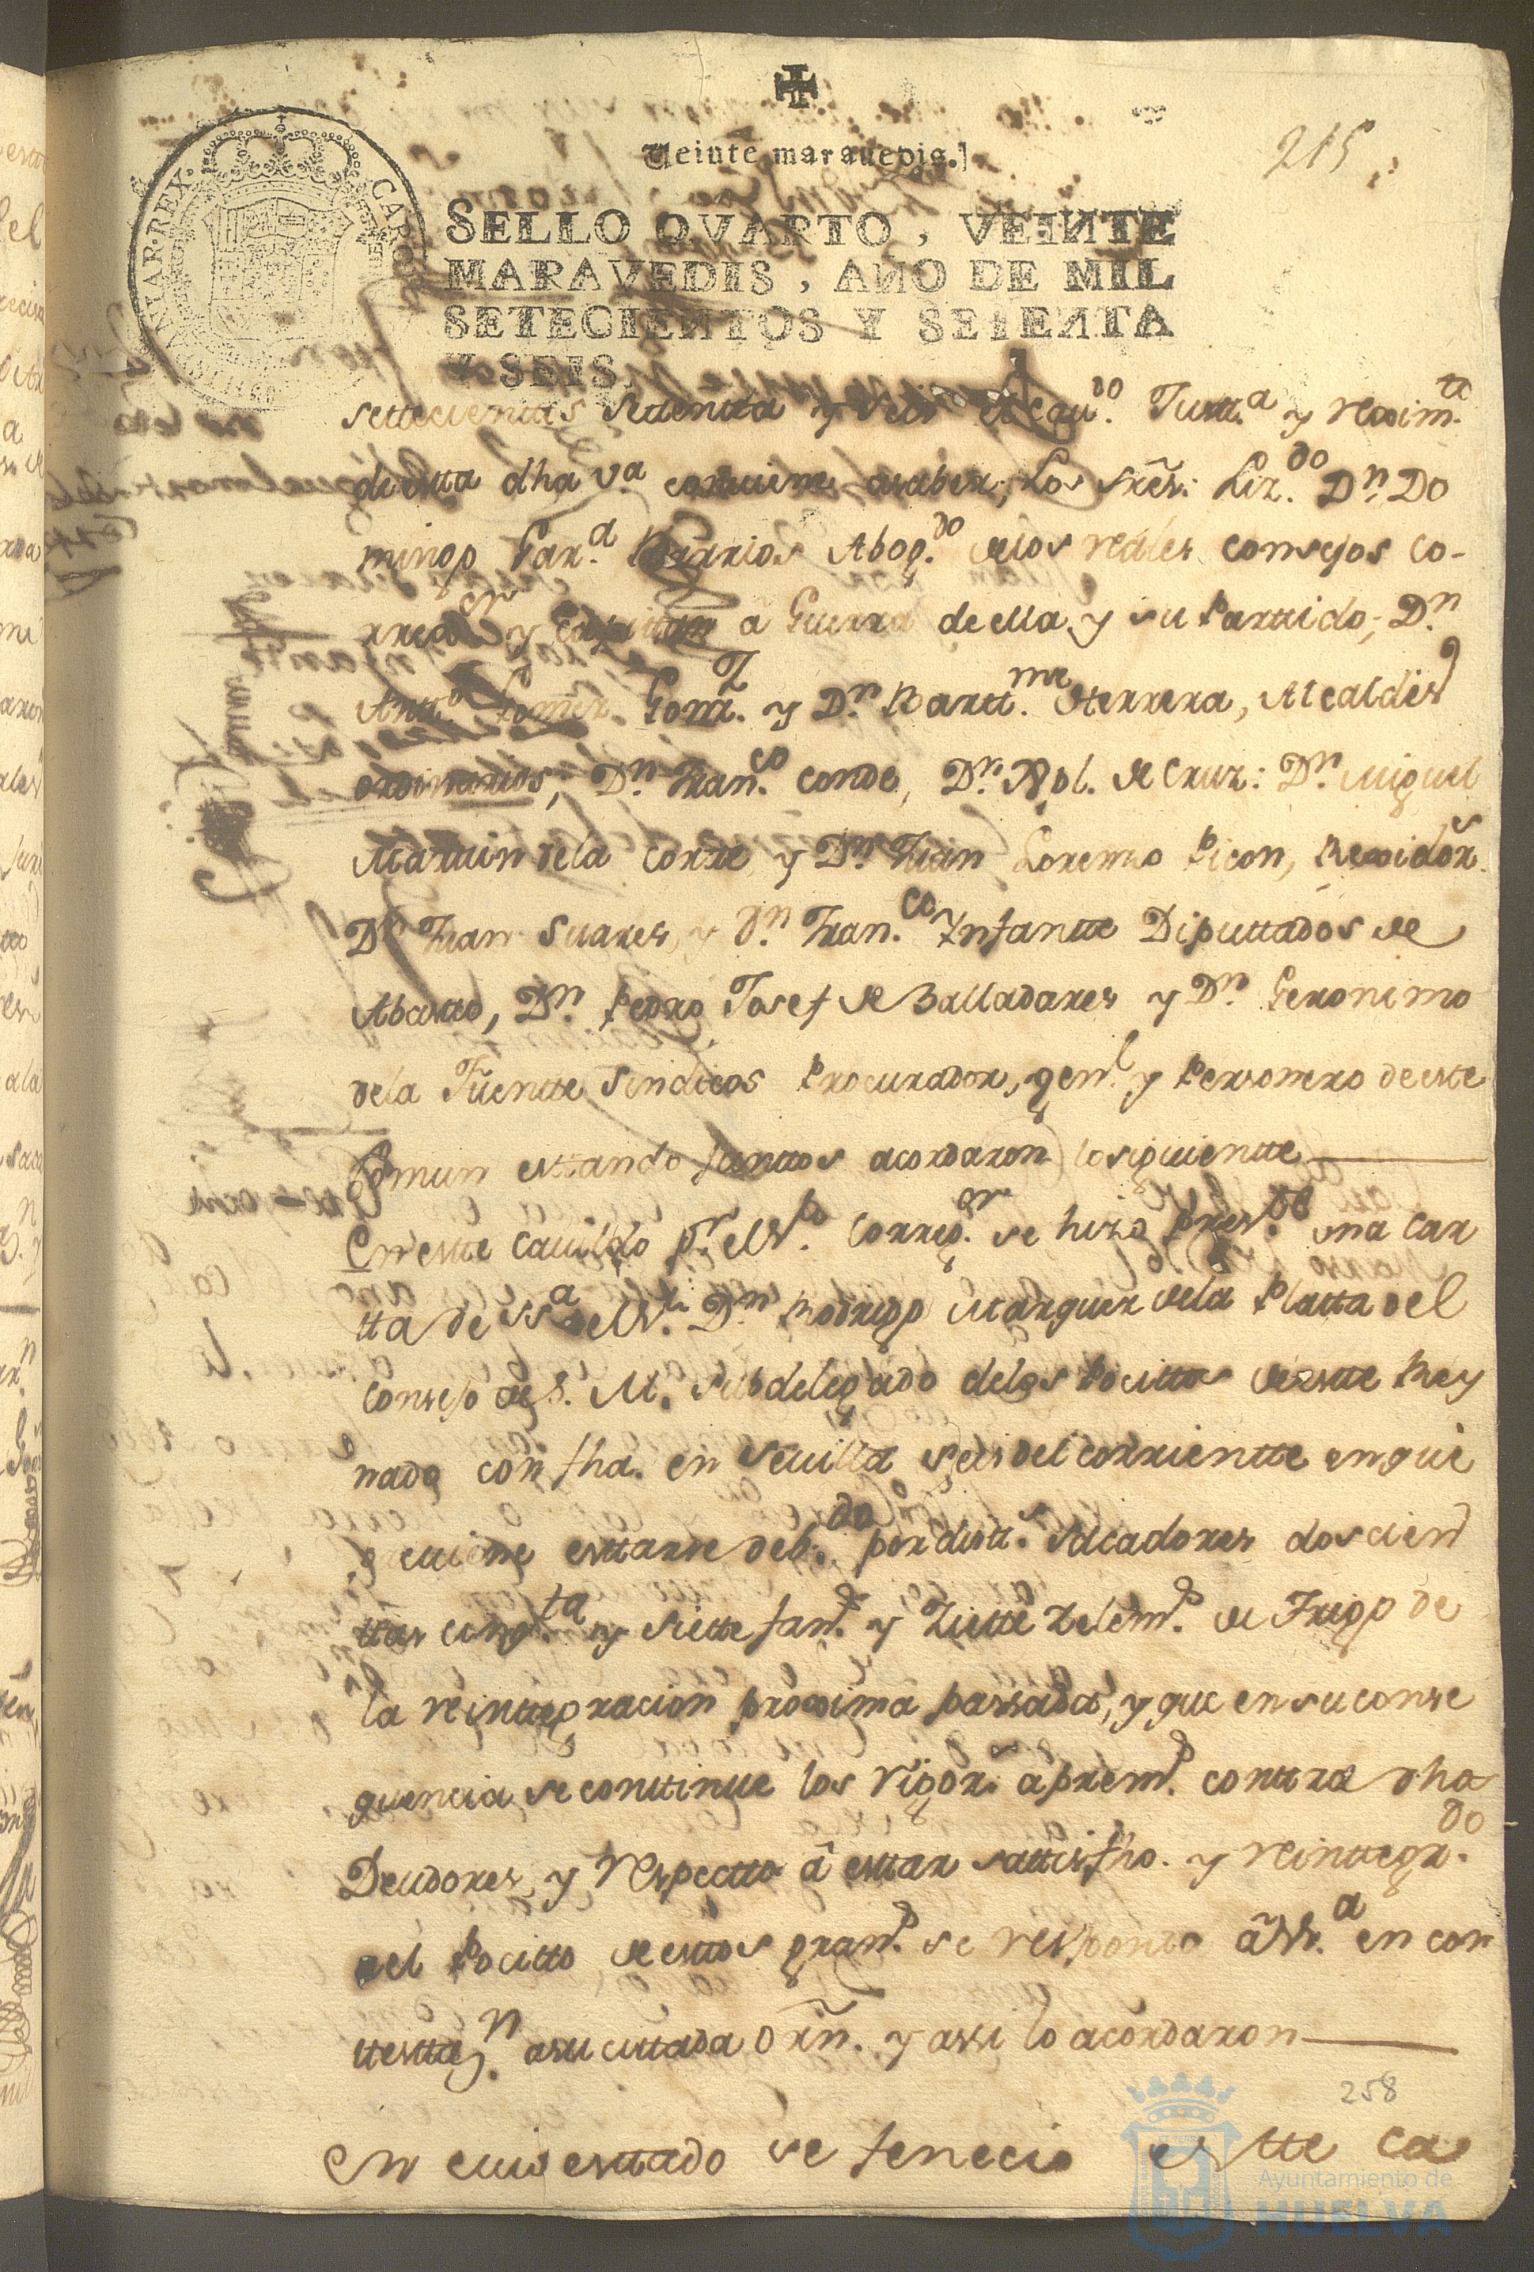 Veinte maravedis.
215
SELLO QVARTO, VEINTE
MARAVEDIS, AÑO DE MIL
SETECIENTOS Y SETENTA
Y SEIS.
CAROLUS
HISPANIAR·REX·
settecientos settenta y seis el Cau.do Justt.a y rexim.to
de estta dha v.a combiene a saber, Los S.res: Liz.do D.n Do
mingo Gar.a Barrios Abog.do de los reales consejos Co-
rreg.or y Capitan a Guerra de ella y su Partido; D.n
Antt.o Gomez Gonz.z y D.n Bartt.me Herrera, Alcaldes
ordinarios, D.n Fran.co Conde, D.n Xptl. de Cruz: D.n Miguel
Martin de la Corte y D.n Juan Lorenzo Picon, Rexidor.s
D.n Juan Suares, y D.n Fran.co Infantte Diputtados de
Abastto, D.n Pedro Josef de Balladares y D.n Geronimo
de la Fuentte Sindicos Procurador, gen.l y Personero de este
Comun esttando junttos acordaron lo siguientte
En estte Cauildo p.r el S.or Correg.or se hizo pres.te una car
tta de SS.a el S.r D.n Rodrigo Marquez de la Platta del
Consejo de S. M. Subdelegado de los Pocittos de estte Rey
nado con fha. en Seuilla seis del corrientte en que
preuiene esttarse deb.do por distt.s sacadores doscien
ttas cinq.ta y siette fan.s y Ziette Zelem.s de Trigo de
la reinttegracion proxima passada, y que en su conse
quencia se conttinue los rigor.s aprem.s conttra dhos
Deudores, y respectto â esttar sattisfho. y reinttegr.do
el Pocitto de esttos gran.s se responda â SS.a en con
ttestta.n a su cittada Orn. y assi lo acordaron
258
en cuio esttado se fenecio estte Ca
Ayuntamiento de
HUELVA